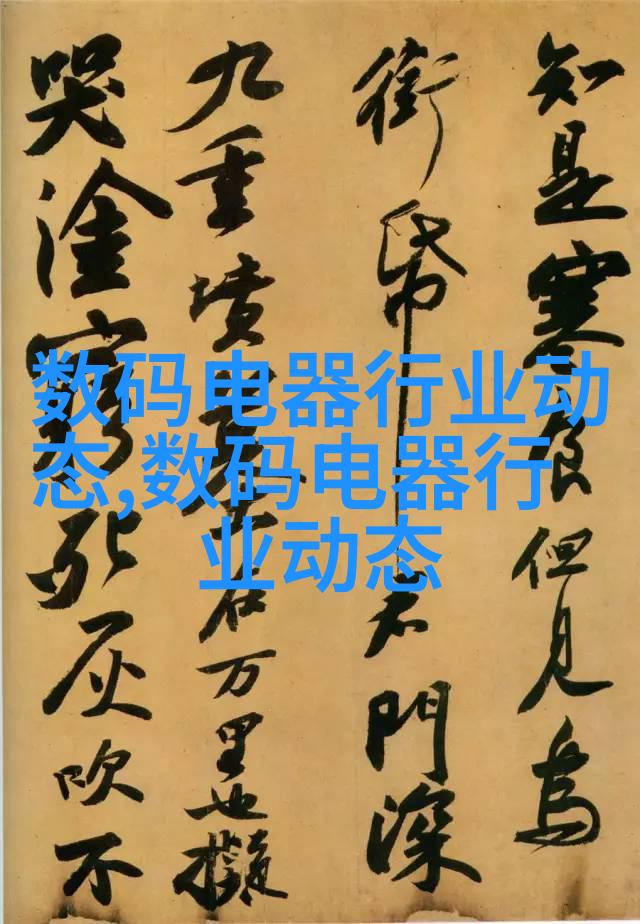 知是寒食但見烏
銜帋君門深
九重墳墓在万里也擬
哭塗窮死灰吹不
数码电器行业动
态,数码电器行
业动态